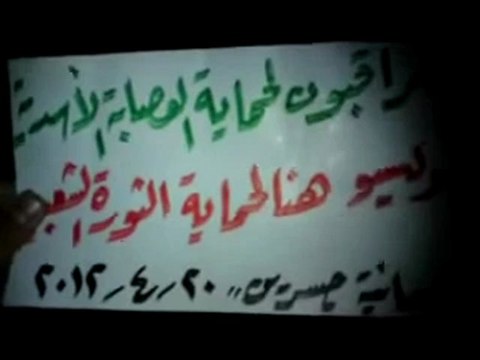 مراقبون لحماية العصابة الأسدية
وليسو هنا لحماية الثورة الشعبية
جسرين ,, ٢٠ / ٤ / ٢٠١٢